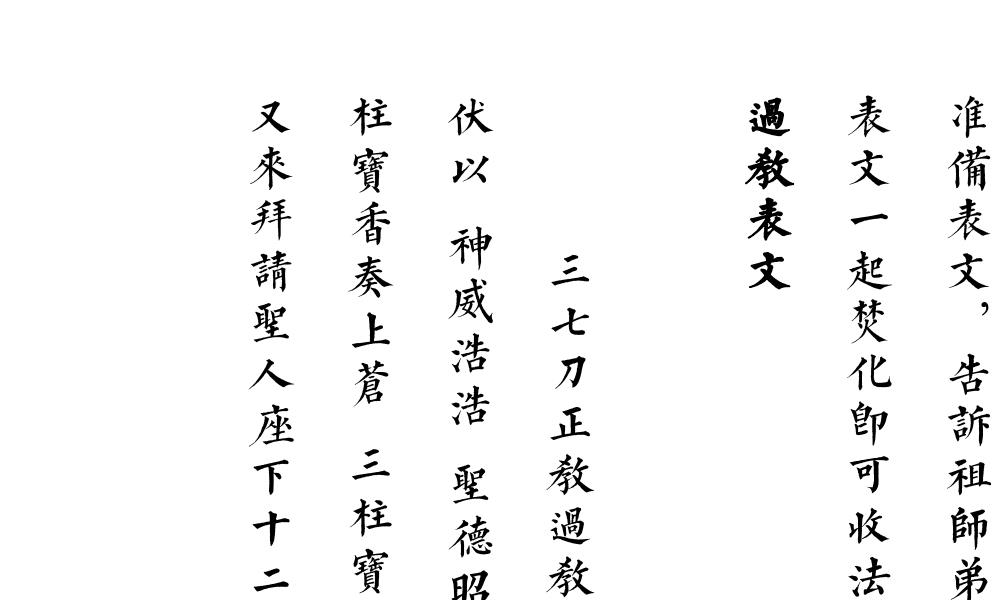 准備表文，告訴祖師弟
表文一起焚化即可收法
過教表文
三七刀正教過教
伏以 神威浩浩 聖德昭
柱寶香奏上蒼 三柱寶
又來拜請聖人座下十二